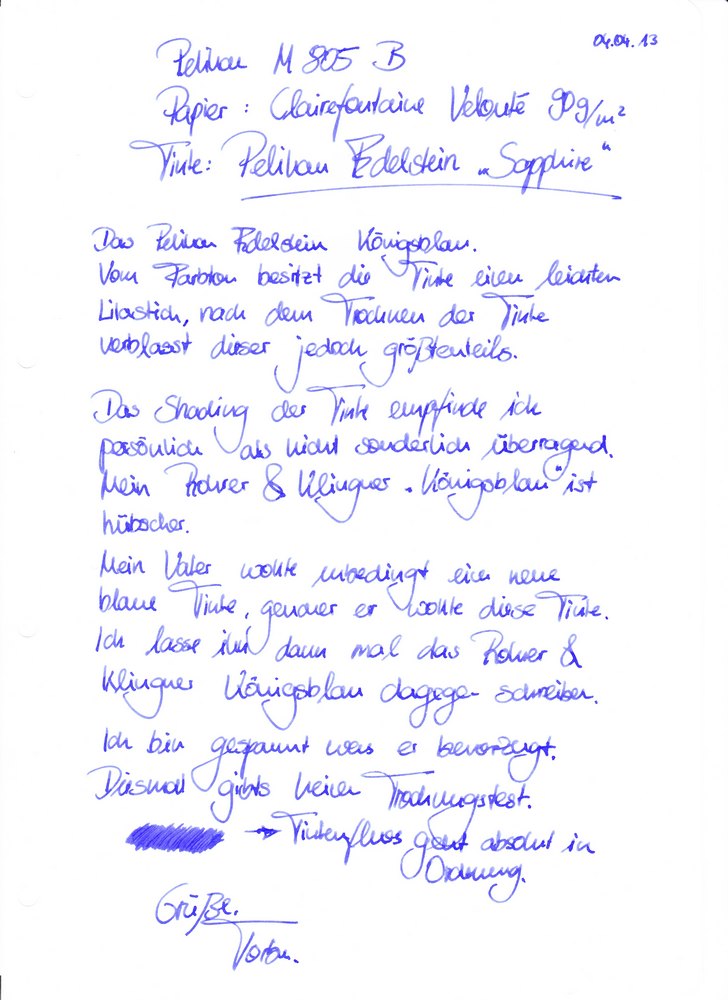 04.04.13
Pelikan M 805 B
Papier: Clairefontaine Velouté 90g/m²
Tinte: Pelikan Edelstein „Sapphire“
Das Pelikan Edelstein Königsblau.
Vom Farbton besitzt die Tinte einen leichten
Lilastich, nach dem Trocknen der Tinte
verblasst dieser jedoch größtenteils.
Das Shading der Tinte empfinde ich
persönlich als nicht sonderlich überragend.
Mein Rohrer & Klingner „Königsblau“ ist
hübscher.
Mein Vater wollte unbedingt eine neue
blaue Tinte, genauer er wollte diese Tinte.
Ich lasse ihn dann mal das Rohrer &
Klingner Königsblau dagegen schreiben.
Ich bin gespannt was er bevorzugt.
Diesmal gibts keinen Trocknungstest.
→ Tintenfluss geht absolut in
Ordnung.
Grüße.